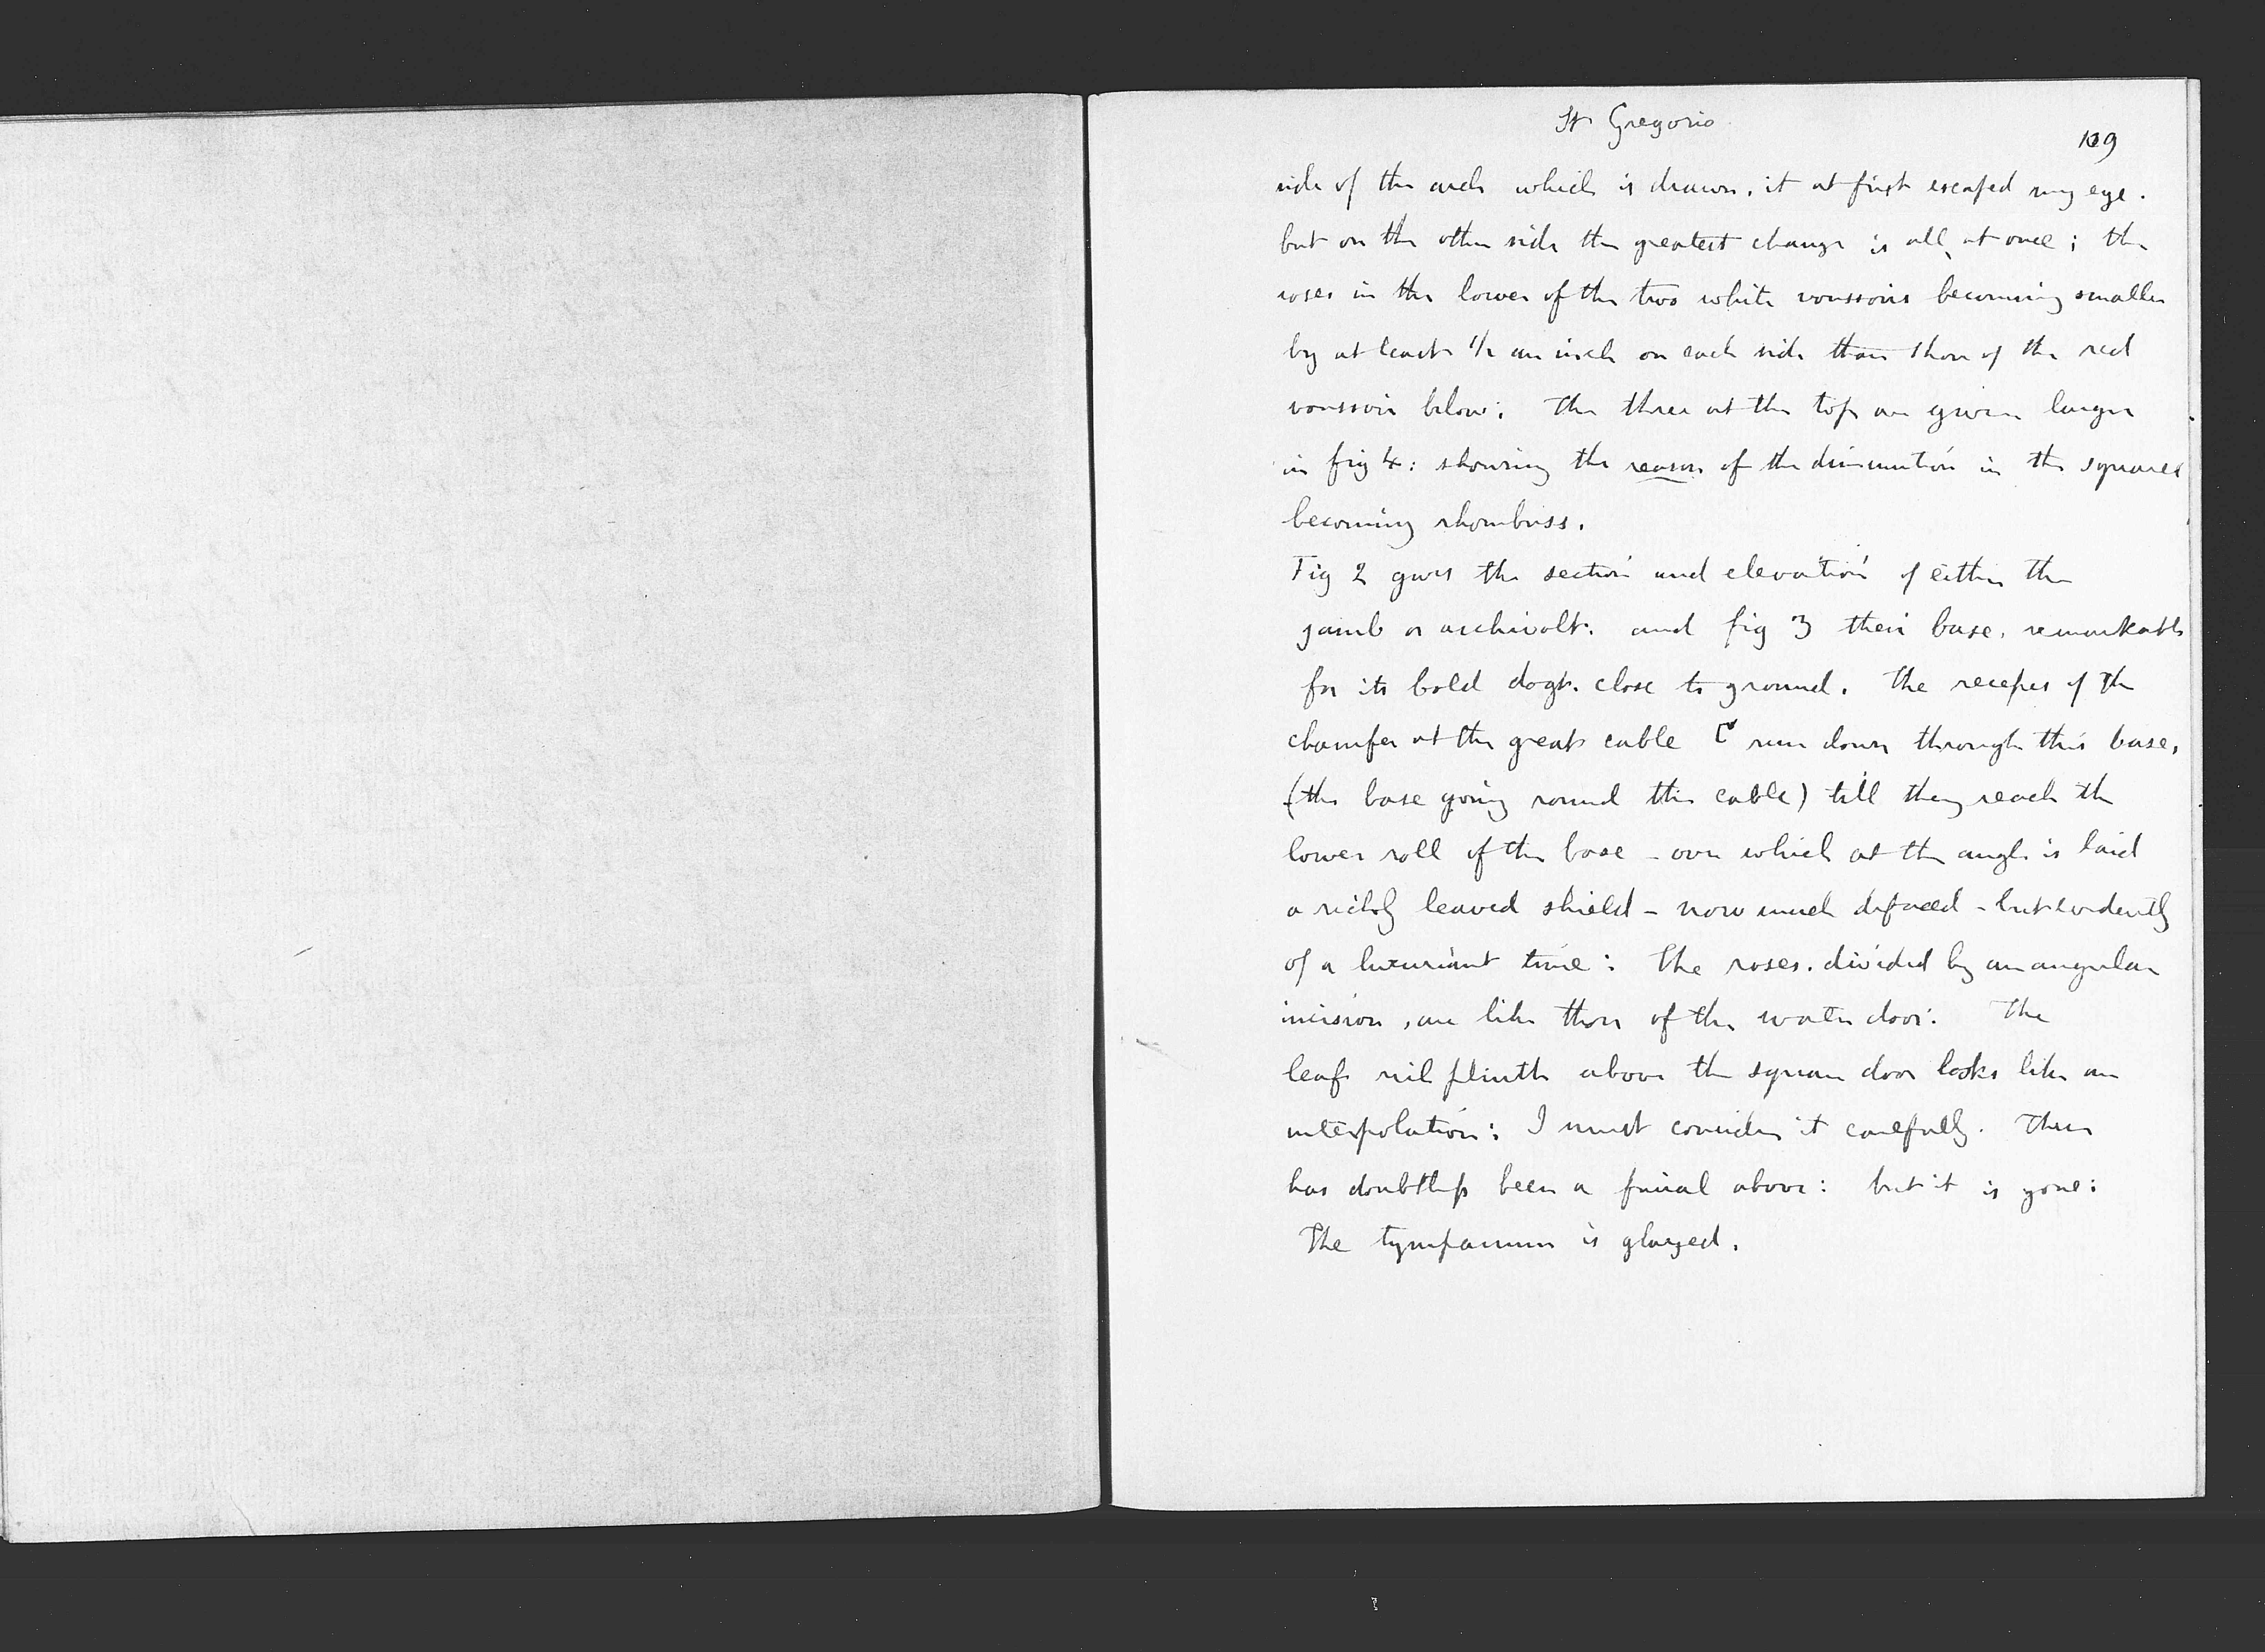 St Gregorio
109
side of the arch which is drawn, it at first escaped my eye.
but on the other side the greatest change is all at once; the
roses in the lower of the two white voussoirs becoming smaller
by at least 1/2 an inch on each side than those of the red
voussoir below: The three at the top are given larger
in fig 4: showing the reason of the diminution in the squares
becoming rhombuss.
Fig 2 gives the section and elevation of either the
jamb or archivolt: and fig 3 their base, remarkable
for its bold dogt. close to ground. The recesses of the
chamfer at the great cable run down through this base,
(the base going round this cable) till they reach the
lower roll of the base - over which at the angle is laid
a richly leaved shield - now much defaced - but evidently
of a luxuriant time: The roses. divided by an angular
incision, are like those of the water door: The
leaf plinth above the square door looks like an
interpolation: I must consider it carefully. There
has doubtless been a finial above: but it is gone:
The tympanum is glazed.